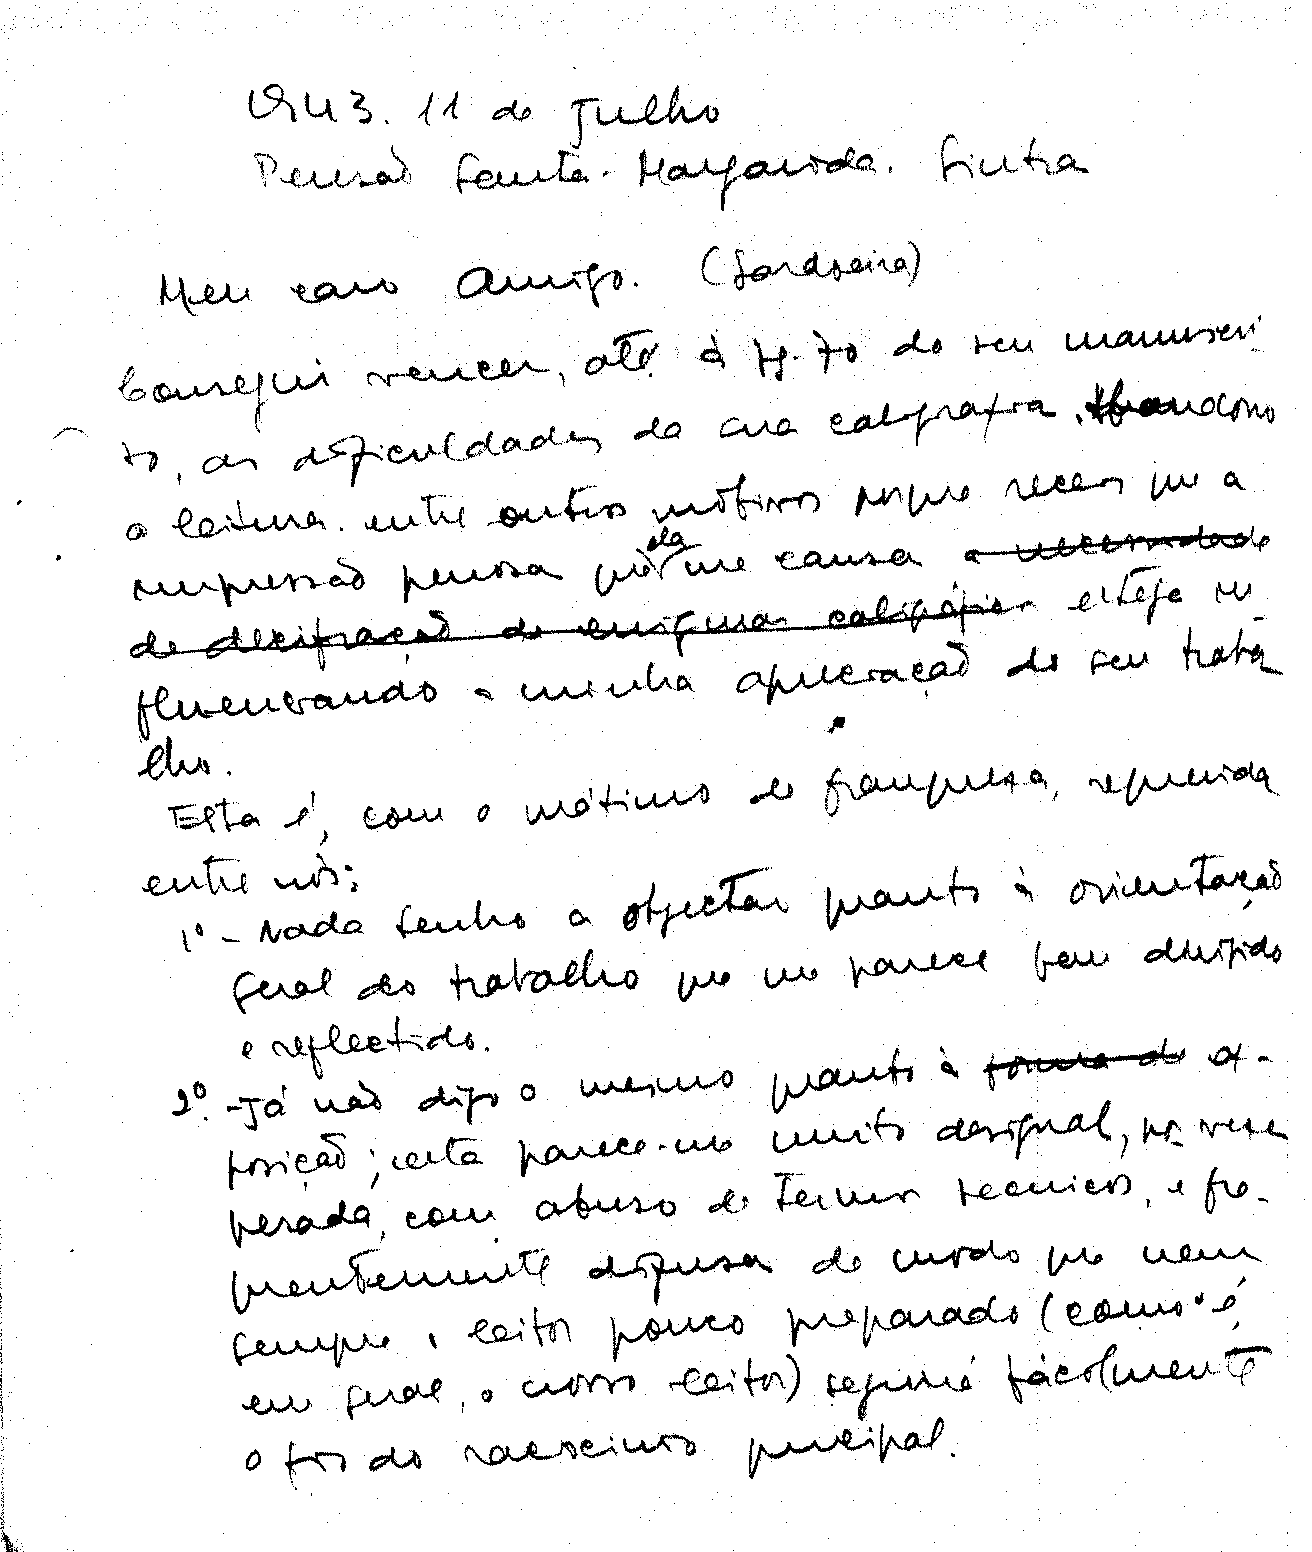 1943. 11 de Julho
Pensão Santa Margarida. Sintra
Meu caro Amigo. (Sardoeira)
Consegui vencer, até à pg. 70 do seu manuscri-
to, as dificuldades da sua caligrafia. Abandono
a leitura entre outros motivos porque receio que a
impressão penosa que ela me causa a necessidade
de decifração de enigmas caligráficos esteja in-
fluenciando a minha apreciação do seu traba
lho.
Esta é, com o máximo de franqueza, requerida
entre nós:
1º - Nada tenho a objectar quanto à orientação
geral do trabalho que me parece bem dirigido
e reflectido.
2º. - Já não digo o mesmo quanto à forma de ex-
posição; esta parece-me muito desigual, por vezes
pesada, com abuso de termos tecnicos, e fre-
quentemente difusa de modo que nem
sempre o leitor pouco preparado (como é,
em geral, o nosso leitor) seguirá fàcilmente
o fio do raciocinio principal.